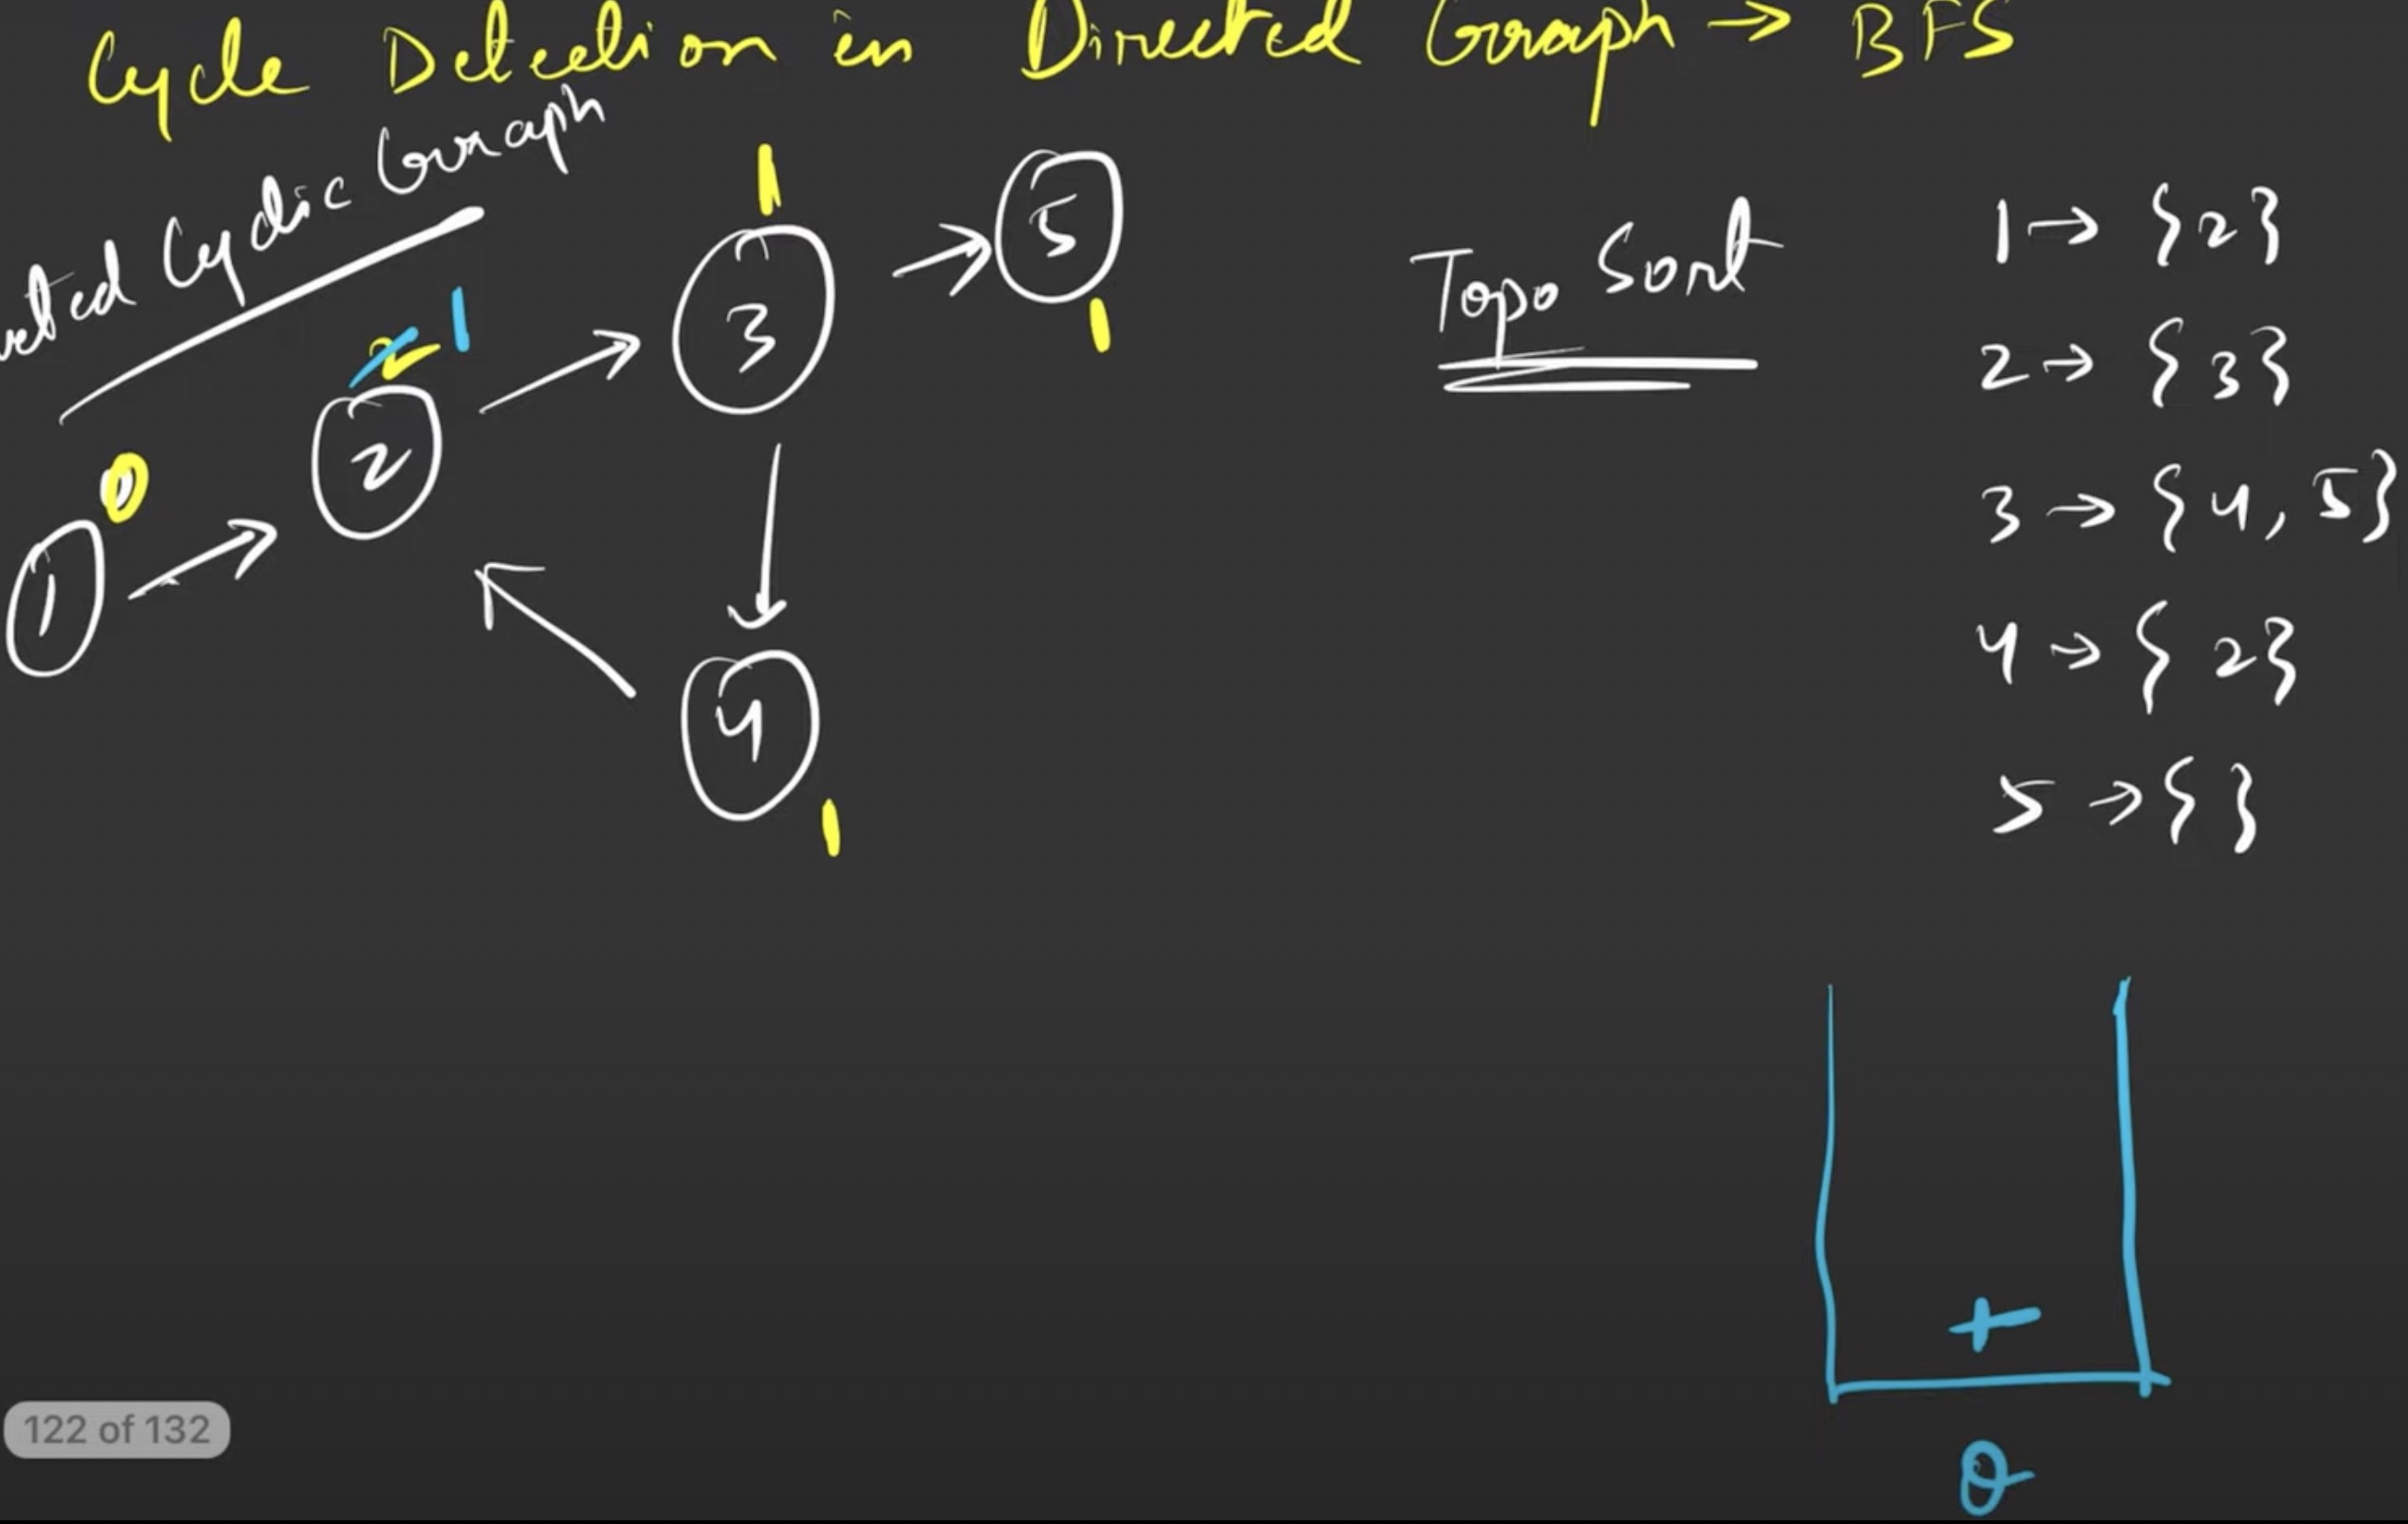 Cycle Detection in Directed Graph → BFS
Cyclic Graph
1
5
3
2 1
2
0
1
1
4
1
Topo Sort
1 → {2}
2 → {3}
3 → {4, 5}
4 → {2}
5 → { }
Q
122 of 132